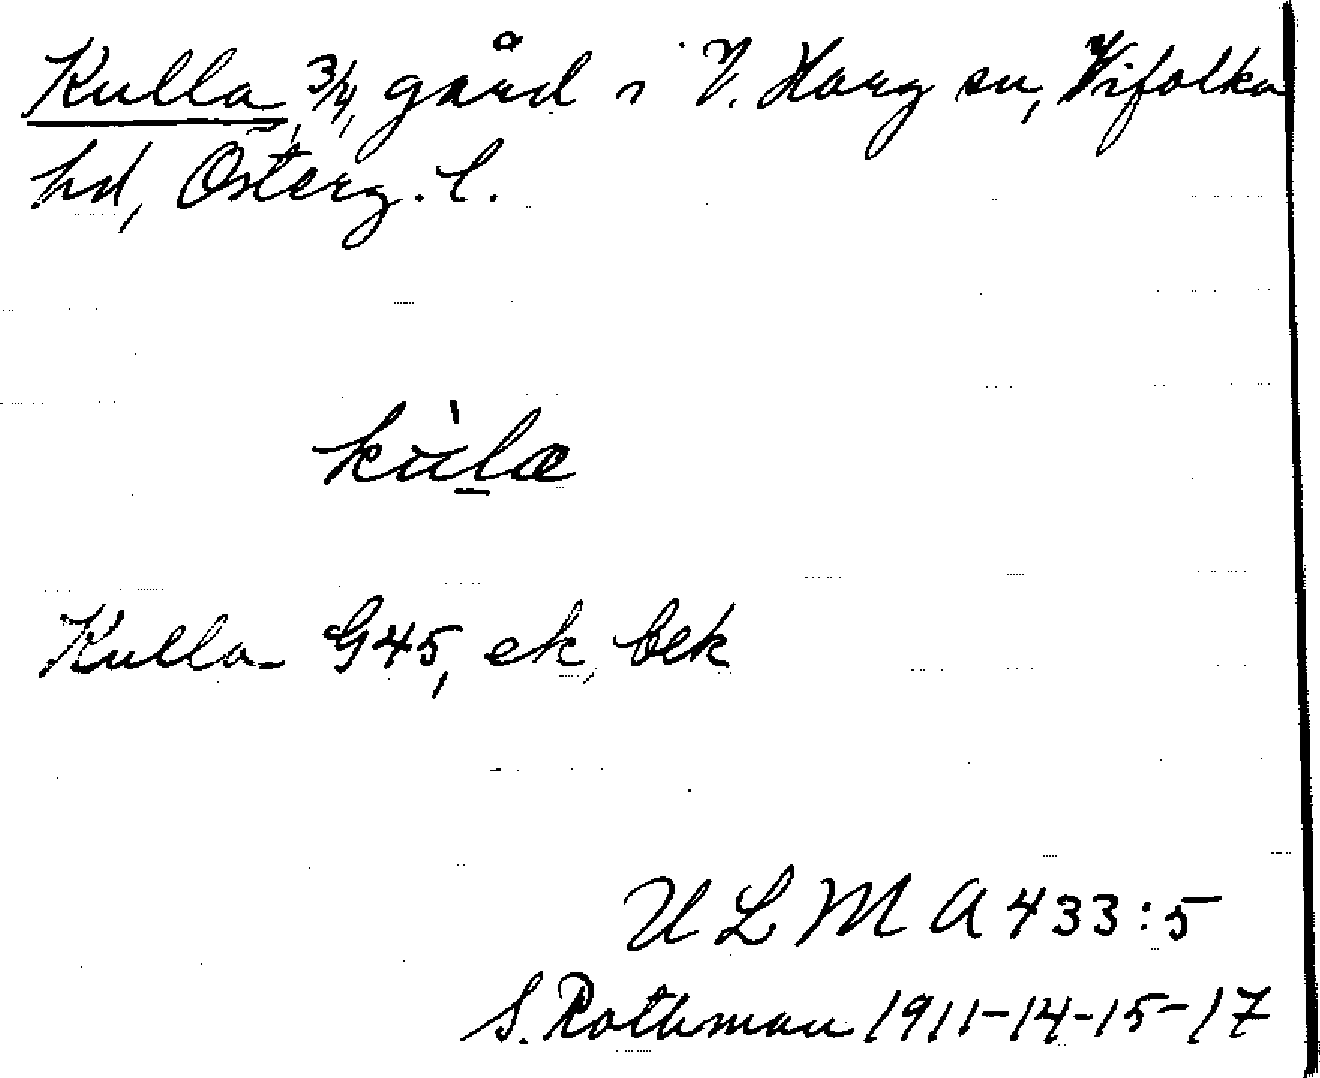 Kulla, 3/4, gård i V. Harg sn, Vifolka
hd, Österg. l.
kùlæ
Kulla G45, ek, bek
ULMA 433:5
S. Rothman 1911-14-15-17